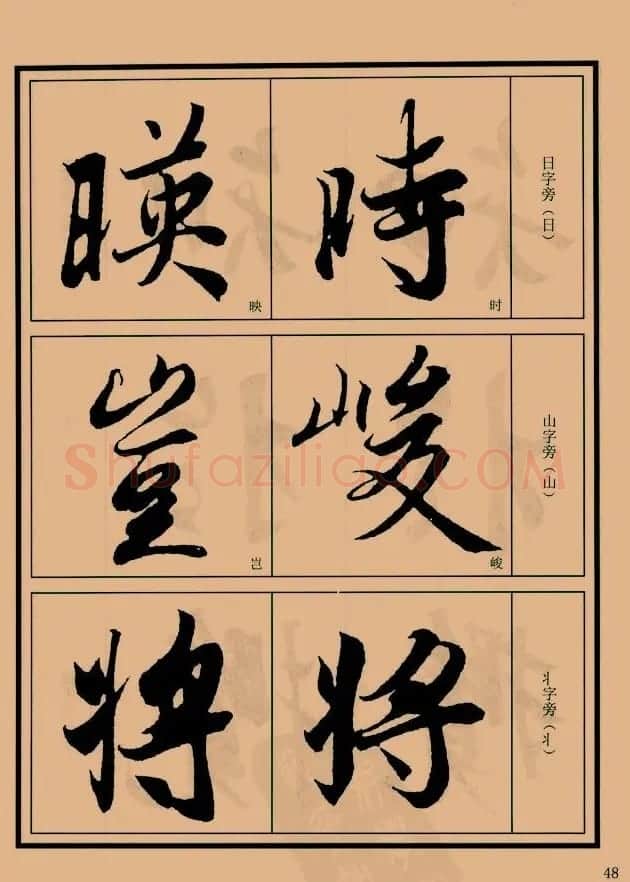 日字旁（日）
時
时
暎
映
山字旁（山）
峻
峻
豈
岂
丬字旁（丬）
将
将
Shufaziliao.COM
48